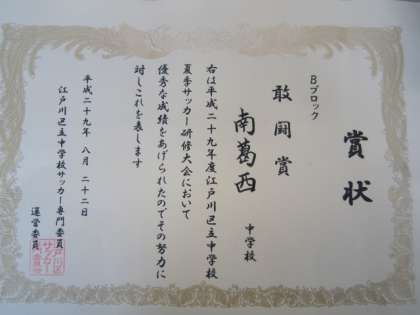 賞状
Bブロック
敢闘賞
南葛西 中学校
右は平成二十九年度江戸川区立中学校
夏季サッカー研修大会において
優秀な成績をあげられたのでその努力に
対しこれを表します
平成二十九年八月二十二日
江戸川区立中学校サッカー専門委員
運営委員